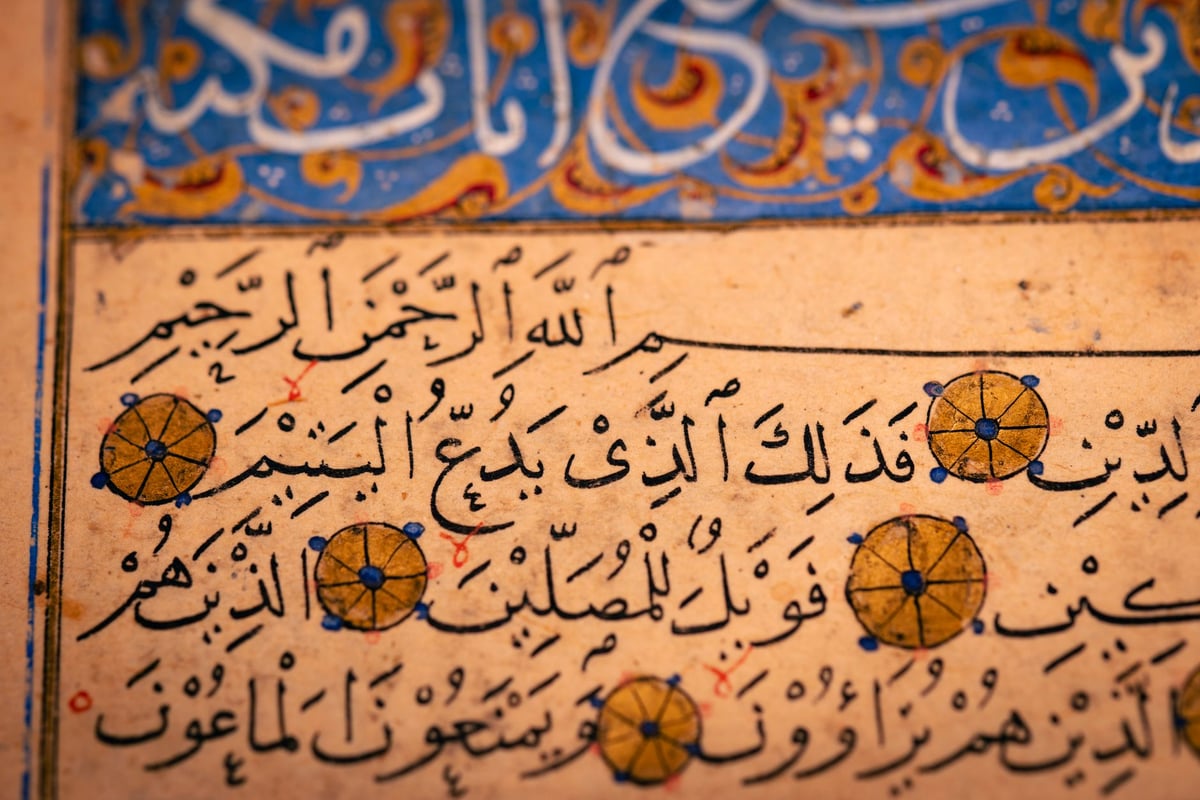 ايات مكيه
ٱللَّهِ ٱلرَّحْمَنِ ٱلرَّحِيْمِ
لدِّيْنِ فَذَلِكَ ٱلَّذِيْ يَدُعُّ الْيَتِيْمَ
كِيْنِ فَوَيْلٌ لِلْمُصَلِّيْنَ الَّذِيْنَ هُمْ
الَّذِيْنَ هُمْ يُرَاؤُوْنَ وَيَمْنَعُوْنَ الْمَاعُوْنَ